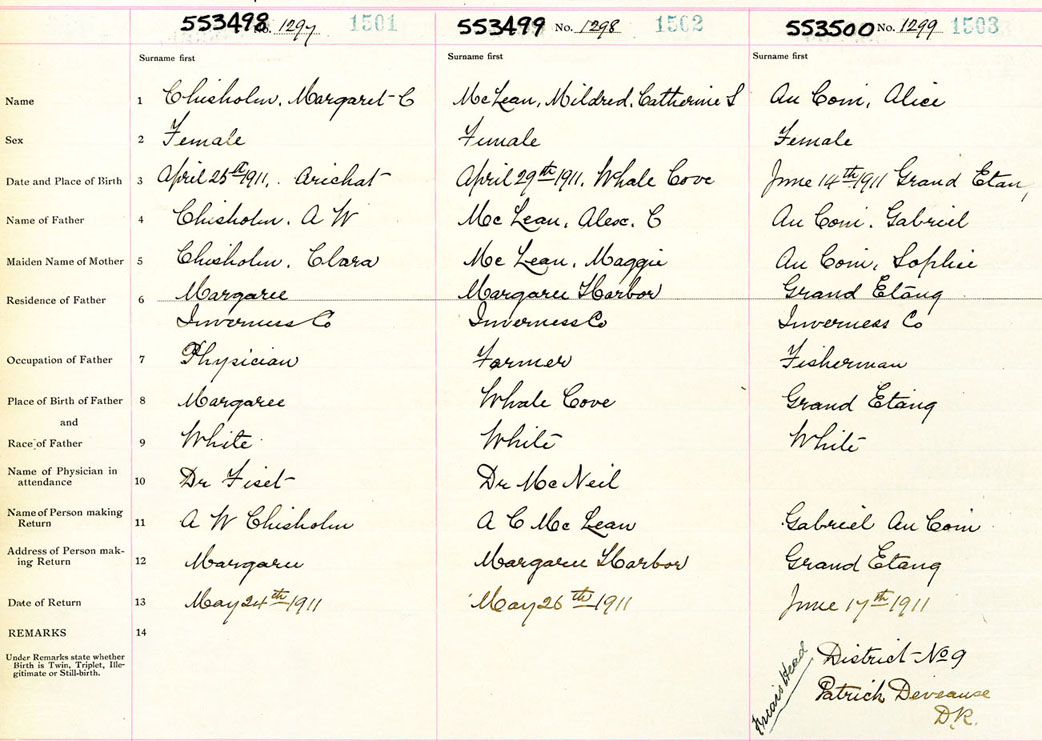 553498 No. 1297 1501 553499 No. 1298 1502 553500 No. 1299 1503
Surname first Surname first Surname first
Name 1 Chisholm, Margaret C McLean, Mildred, Catherine S Au Coin, Alice
Sex 2 Female Female Female
Date and Place of Birth 3 April 25th 1911, Arichat April 29th 1911, Whale Cove June 14th 1911 Grand Etan,
Name of Father 4 Chisholm, A W McLean, Alex. C Au Coin, Gabriel
Maiden Name of Mother 5 Chisholm, Clara McLean, Maggie Au Coin, Sophie
Residence of Father 6 Margaree Margaree Harbor Grand Etang
Inverness Co Inverness Co Inverness Co
Occupation of Father 7 Physician Farmer Fisherman
Place of Birth of Father 8 Margaree Whale Cove Grand Etang
and
Race of Father 9 White White White
Name of Physician in
attendance 10 Dr Fiset Dr McNeil
Name of Person making
Return 11 A W Chisholm A C McLean Gabriel Au Coin
Address of Person mak-
ing Return 12 Margaree Margaree Harbor Grand Etang
Date of Return 13 May 24th 1911 May 26th 1911 June 17th 1911
REMARKS 14
Under Remarks state whether
Birth is Twin, Triplet, Ille-
gitimate or Still-birth.
Friars Head
District No 9
Patrick Deveause
D.R.